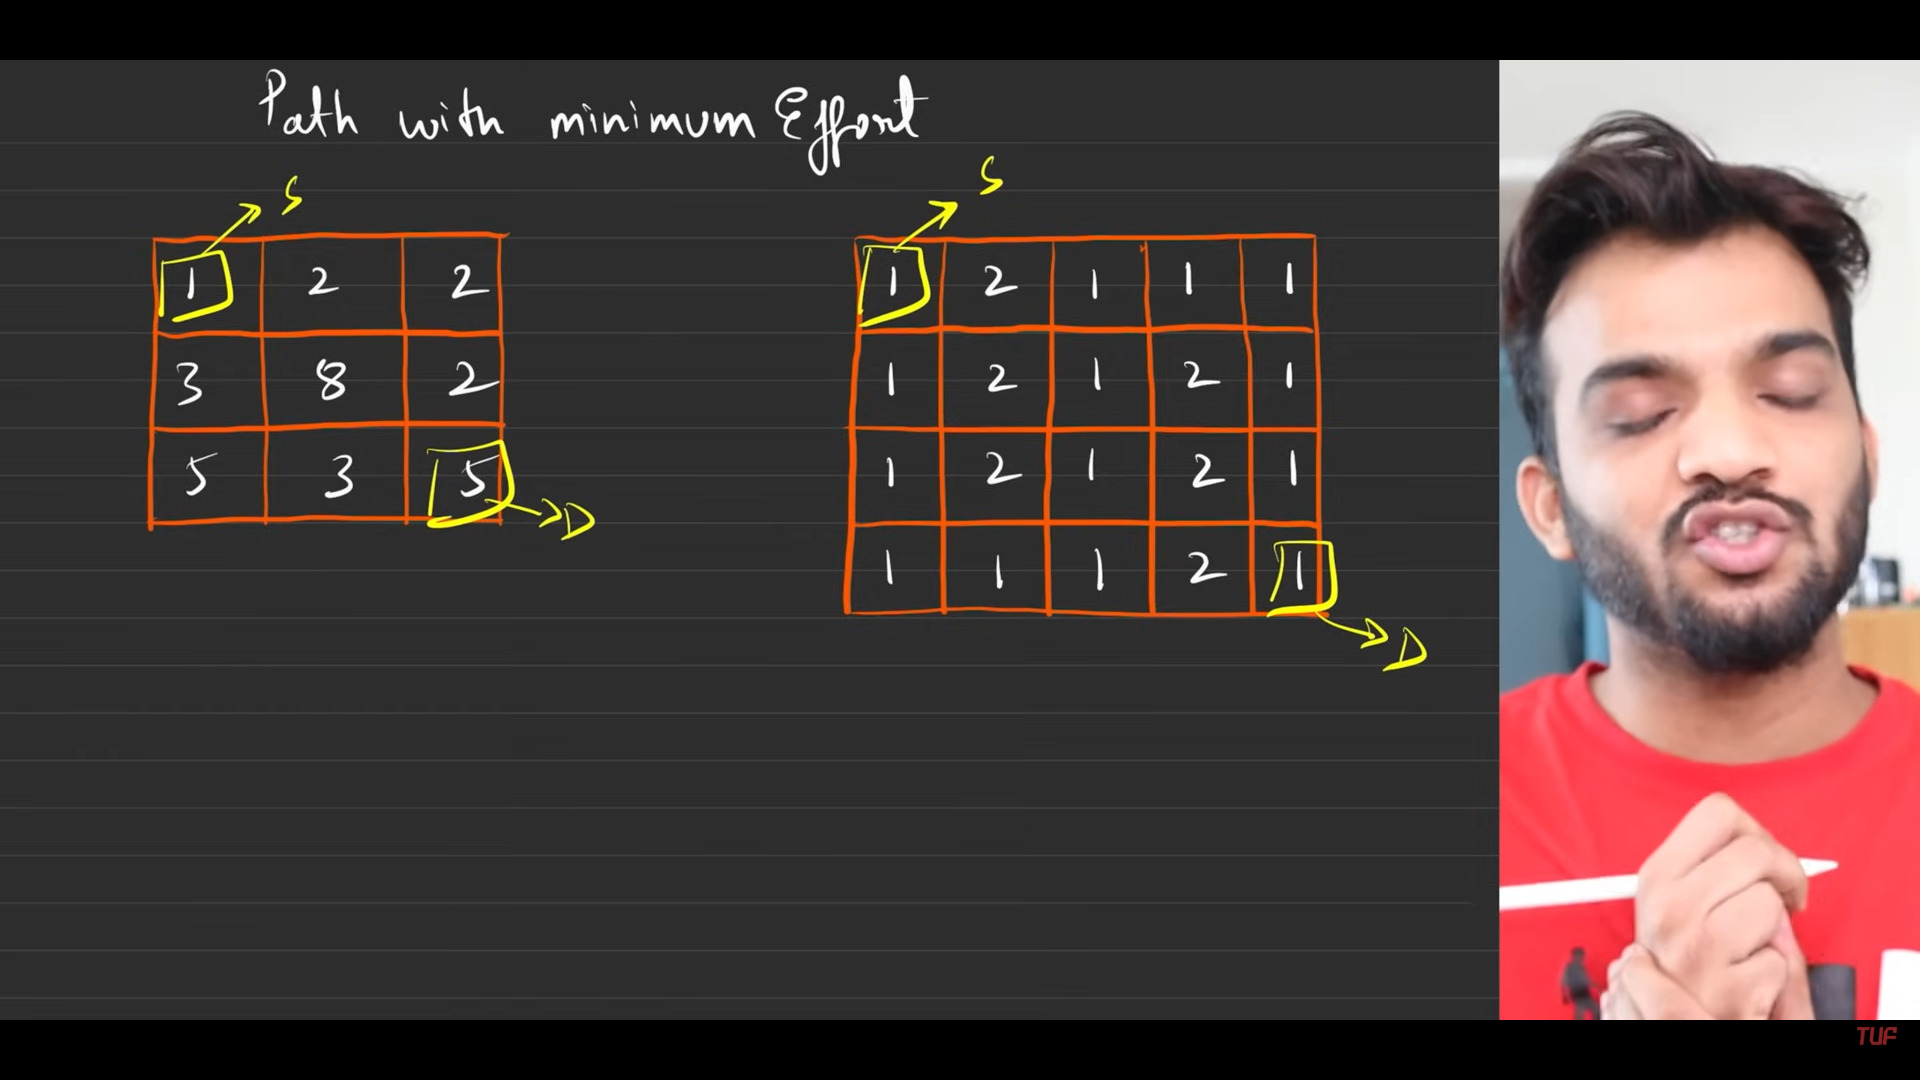 Path with minimum Effort
S
S
1 2 2
3 8 2
5 3 5
D
1 2 1 1 1
1 2 1 2 1
1 2 1 2 1
1 1 1 2 1
D
TUF